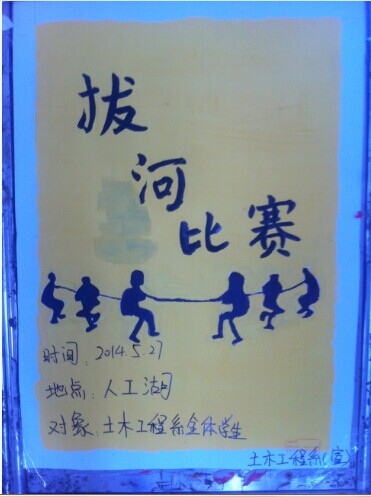 拔河比赛
时间:2014.5.27
地点:人工湖
对象:土木工程系全体学生
土木工程系(宣)